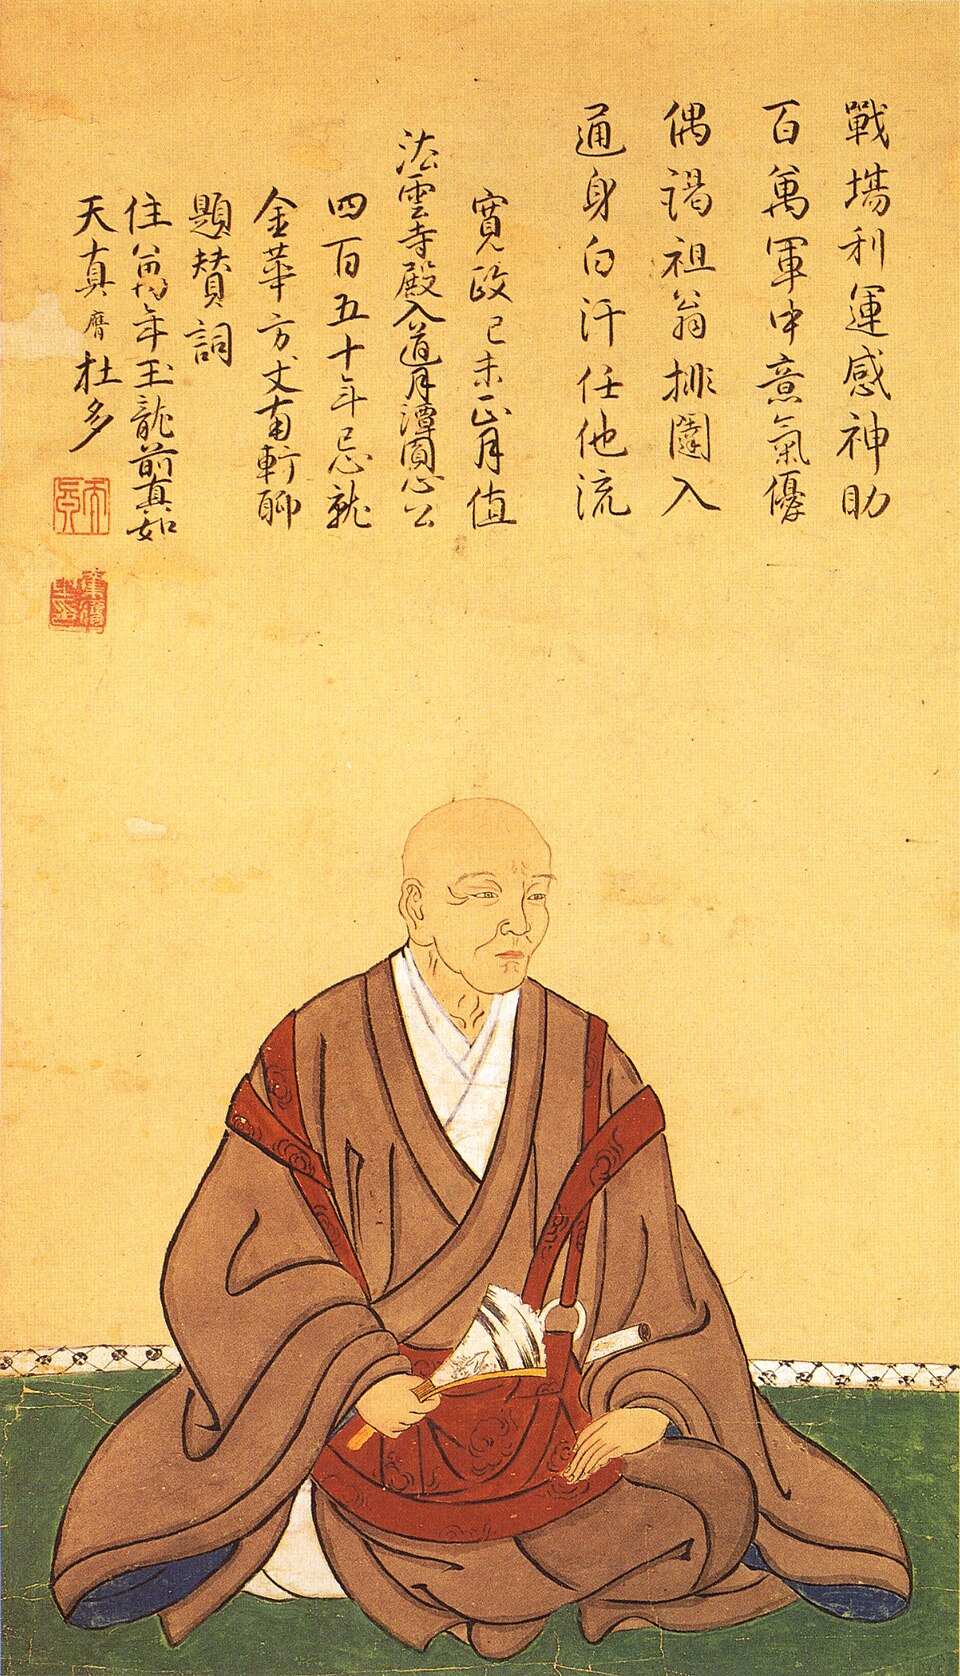 戰場利運感神助
百萬軍中意氣優
偶謁祖翁排闥入
通身白汗任他流
寛政己未正月値
法雲寺殿入道月潭圓心公
四百五十年忌就
金華方丈南軒聊
題賛詞
住當山前玉龍前真如
天真膺杜多